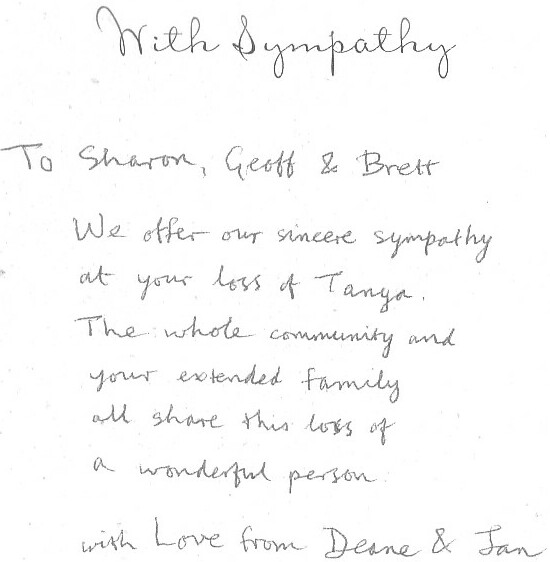 With Sympathy
To Sharon, Geoff & Brett
We offer our sincere sympathy
at your loss of Tanya.
The whole community and
your extended family
all share this loss of
a wonderful person
with Love from Deane & Jan